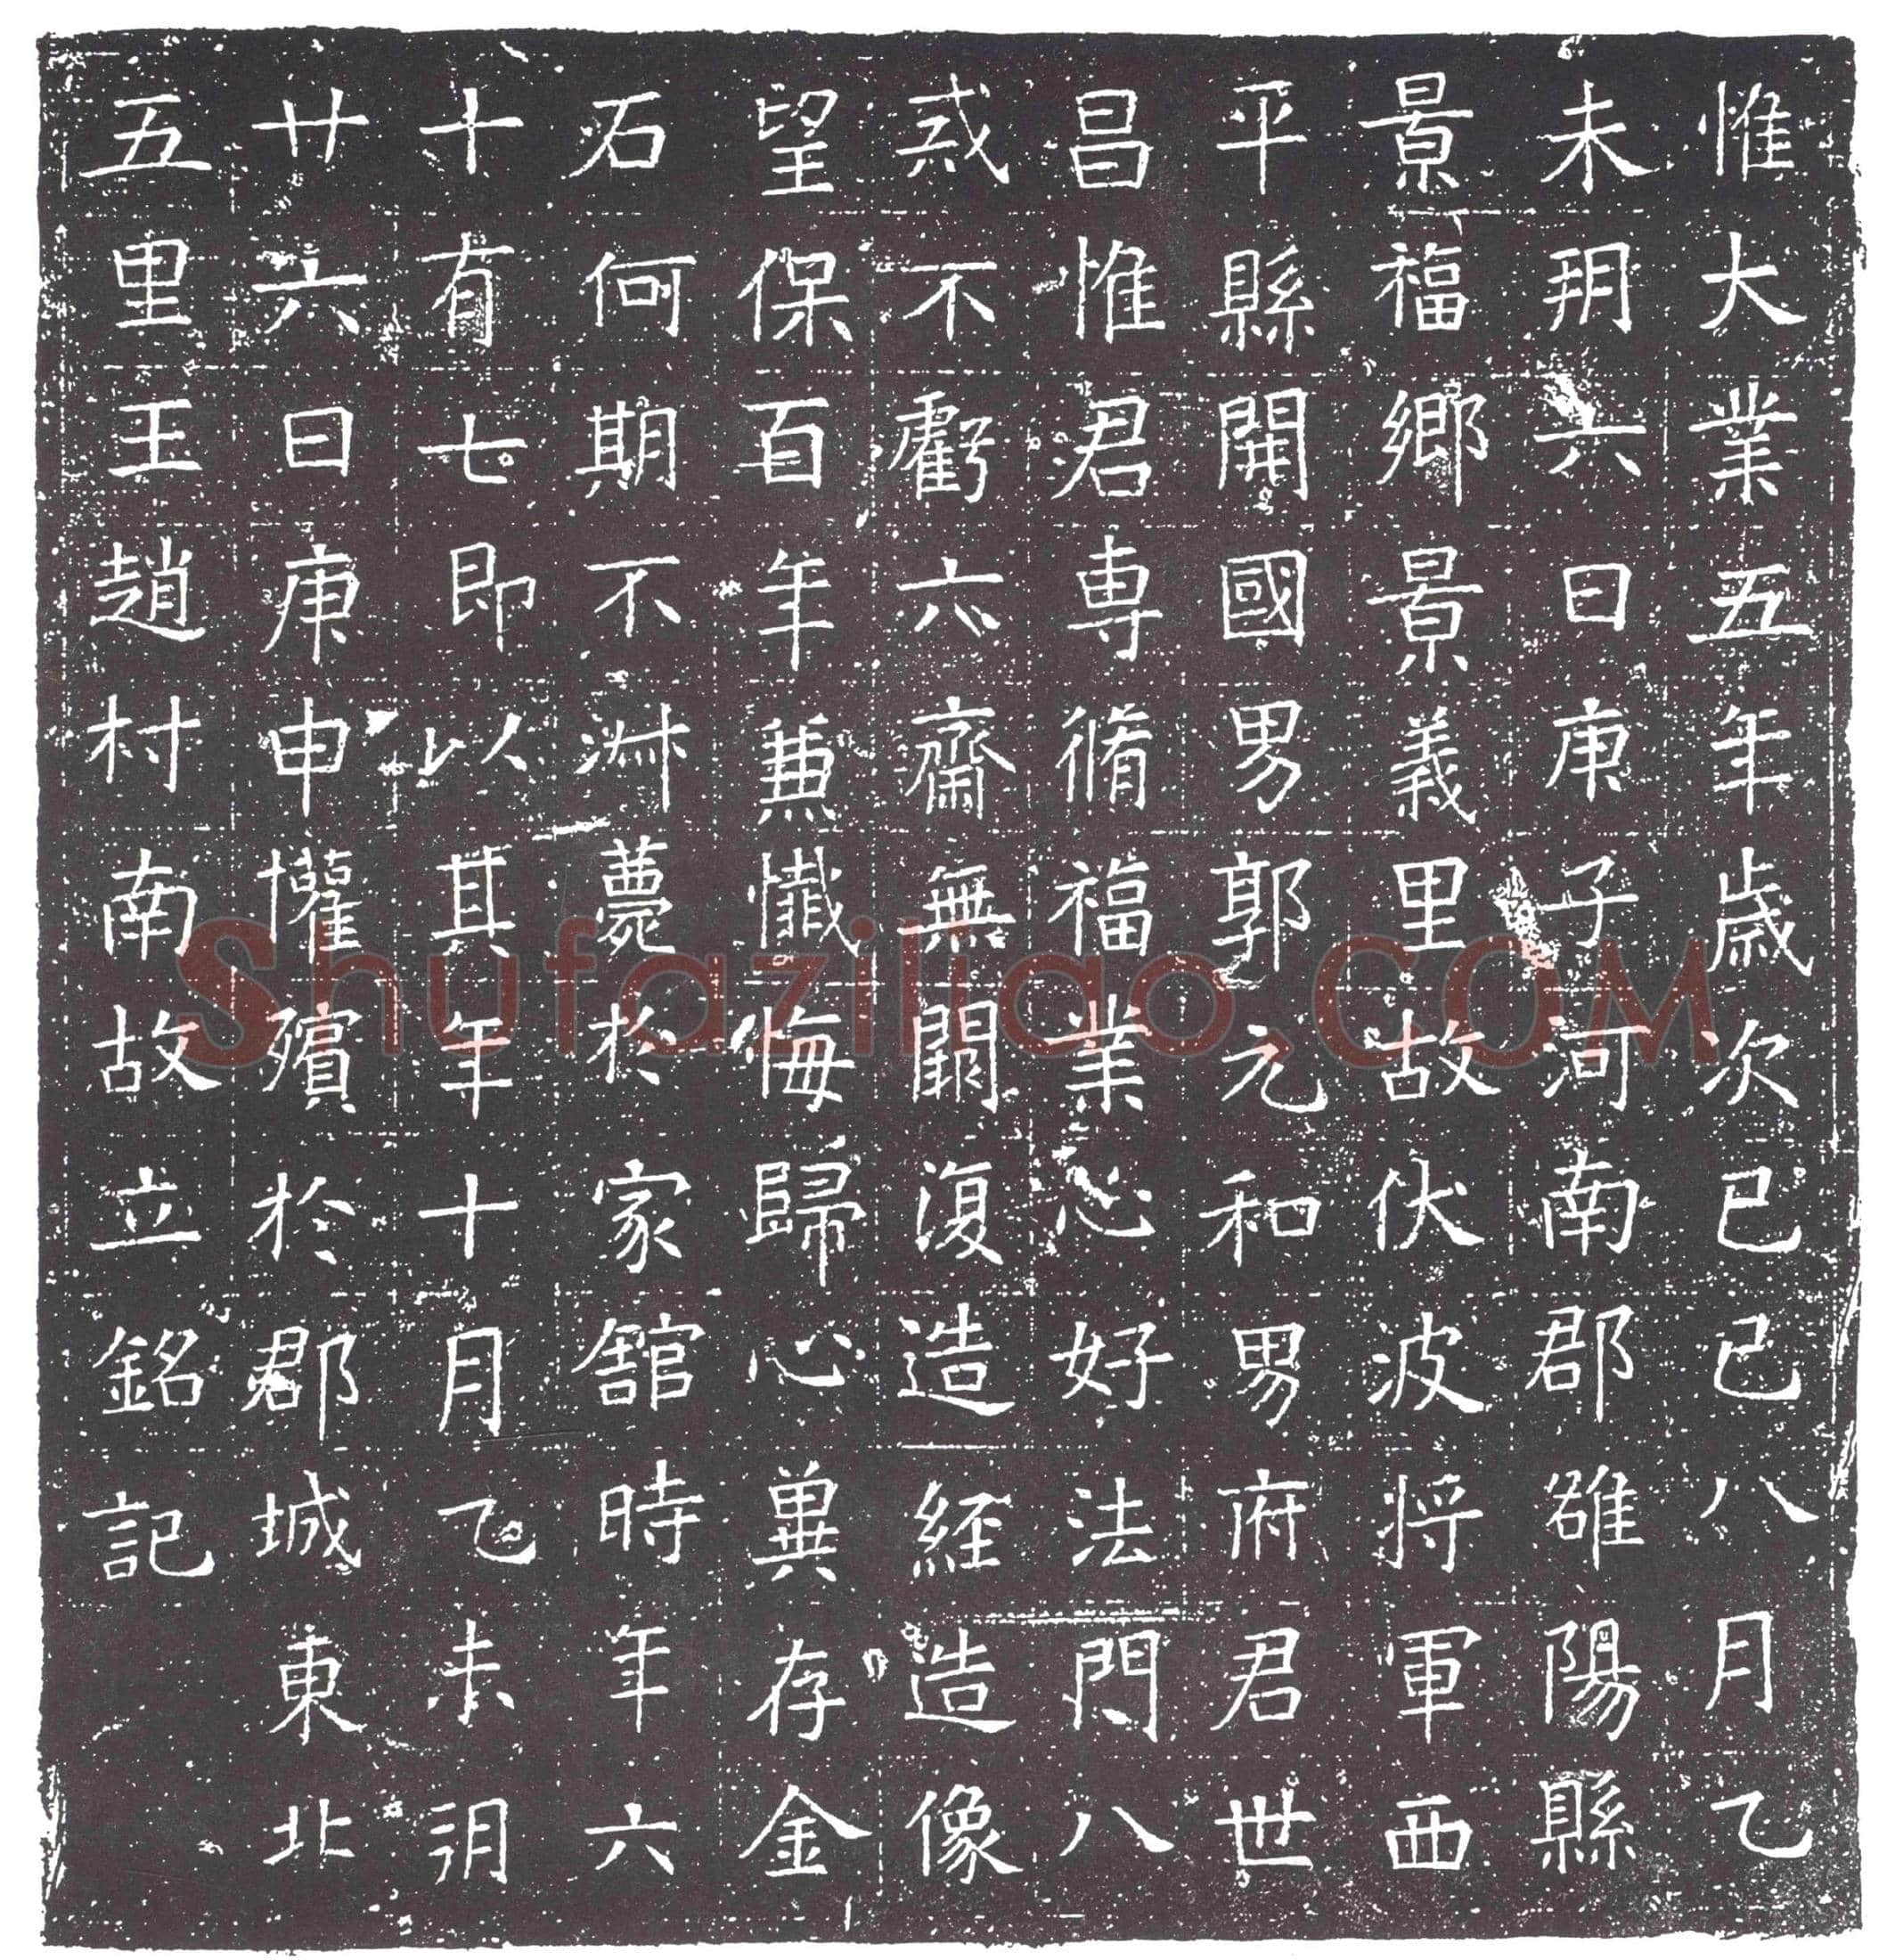 惟大業五年歲次己巳八月乙
未朔六日庚子河南郡雒陽縣
景福鄉景義里故伏波将軍西
平縣開國男郭元和男府君世
昌惟君専脩福業心好法門八
戒不虧六齋無闕復造経造像
望保百年兼懺悔歸心兾存金
石何期不淋薨於家館時年六
十有七即以其年十月乙未朔
廿六日庚申權殯於郡城東北
五里王趙村南故立銘記
Shufaziliao.COM